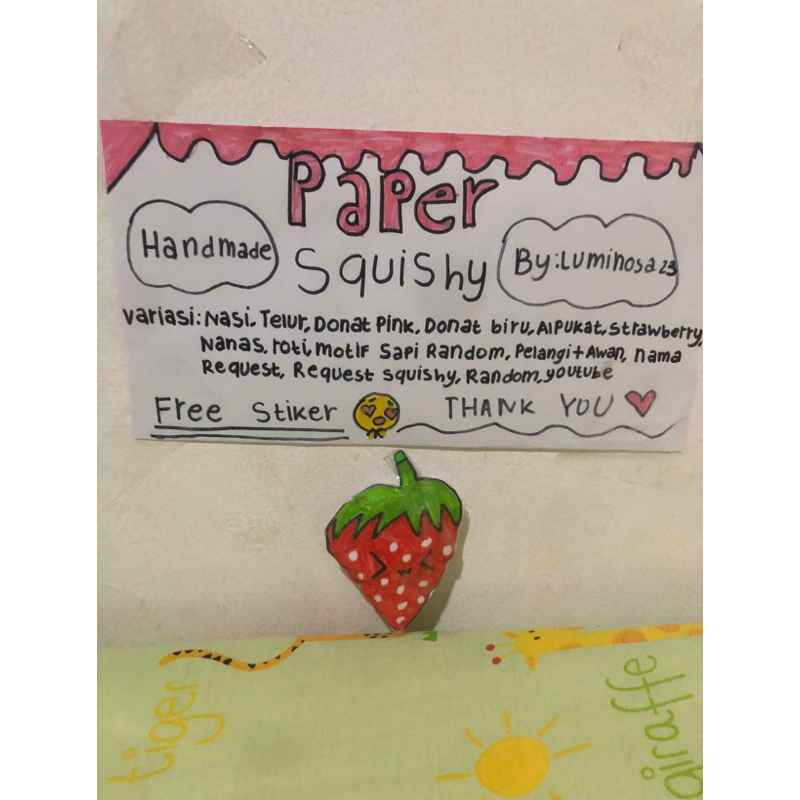 Paper
Handmade
Squishy
By:Luminosa23
Variasi: Nasi, Telur, Donat Pink, Donat biru, Alpukat, Strawberry,
Nanas, roti, motif Sapi Random, Pelangi+Awan, nama
Request, Request squishy, Random, youtube
Free Stiker
THANK YOU
tiger
giraffe